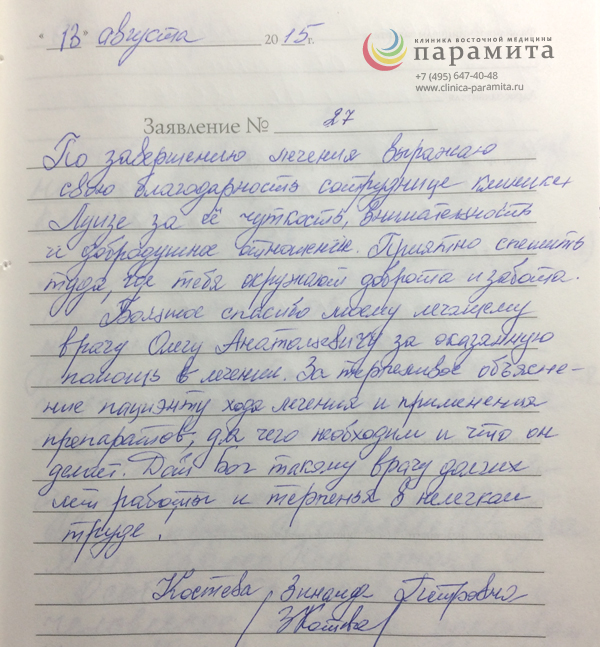 "13" августа 2015г.
КЛИНИКА ВОСТОЧНОЙ МЕДИЦИНЫ
парамита
+7 (495) 647-40-48
www.clinica-paramita.ru
Заявление № 27
По завершению лечения выражаю
свою благодарность сотруднице клиники
Луизе за её чуткость, внимательность
и добродушное отношение. Приятно спешить
туда, где тебя окружают доброта и забота.
Большое спасибо моему лечащему
врачу Олегу Анатольевичу за оказанную
помощь в лечении. За терпеливое объясне-
ние пациенту хода лечения и применения
препаратов, для чего необходим и что он
делает. Дай Бог такому врачу долгих
лет работы и терпенья в нелегком
труде.
Костева Зинаида Петровна